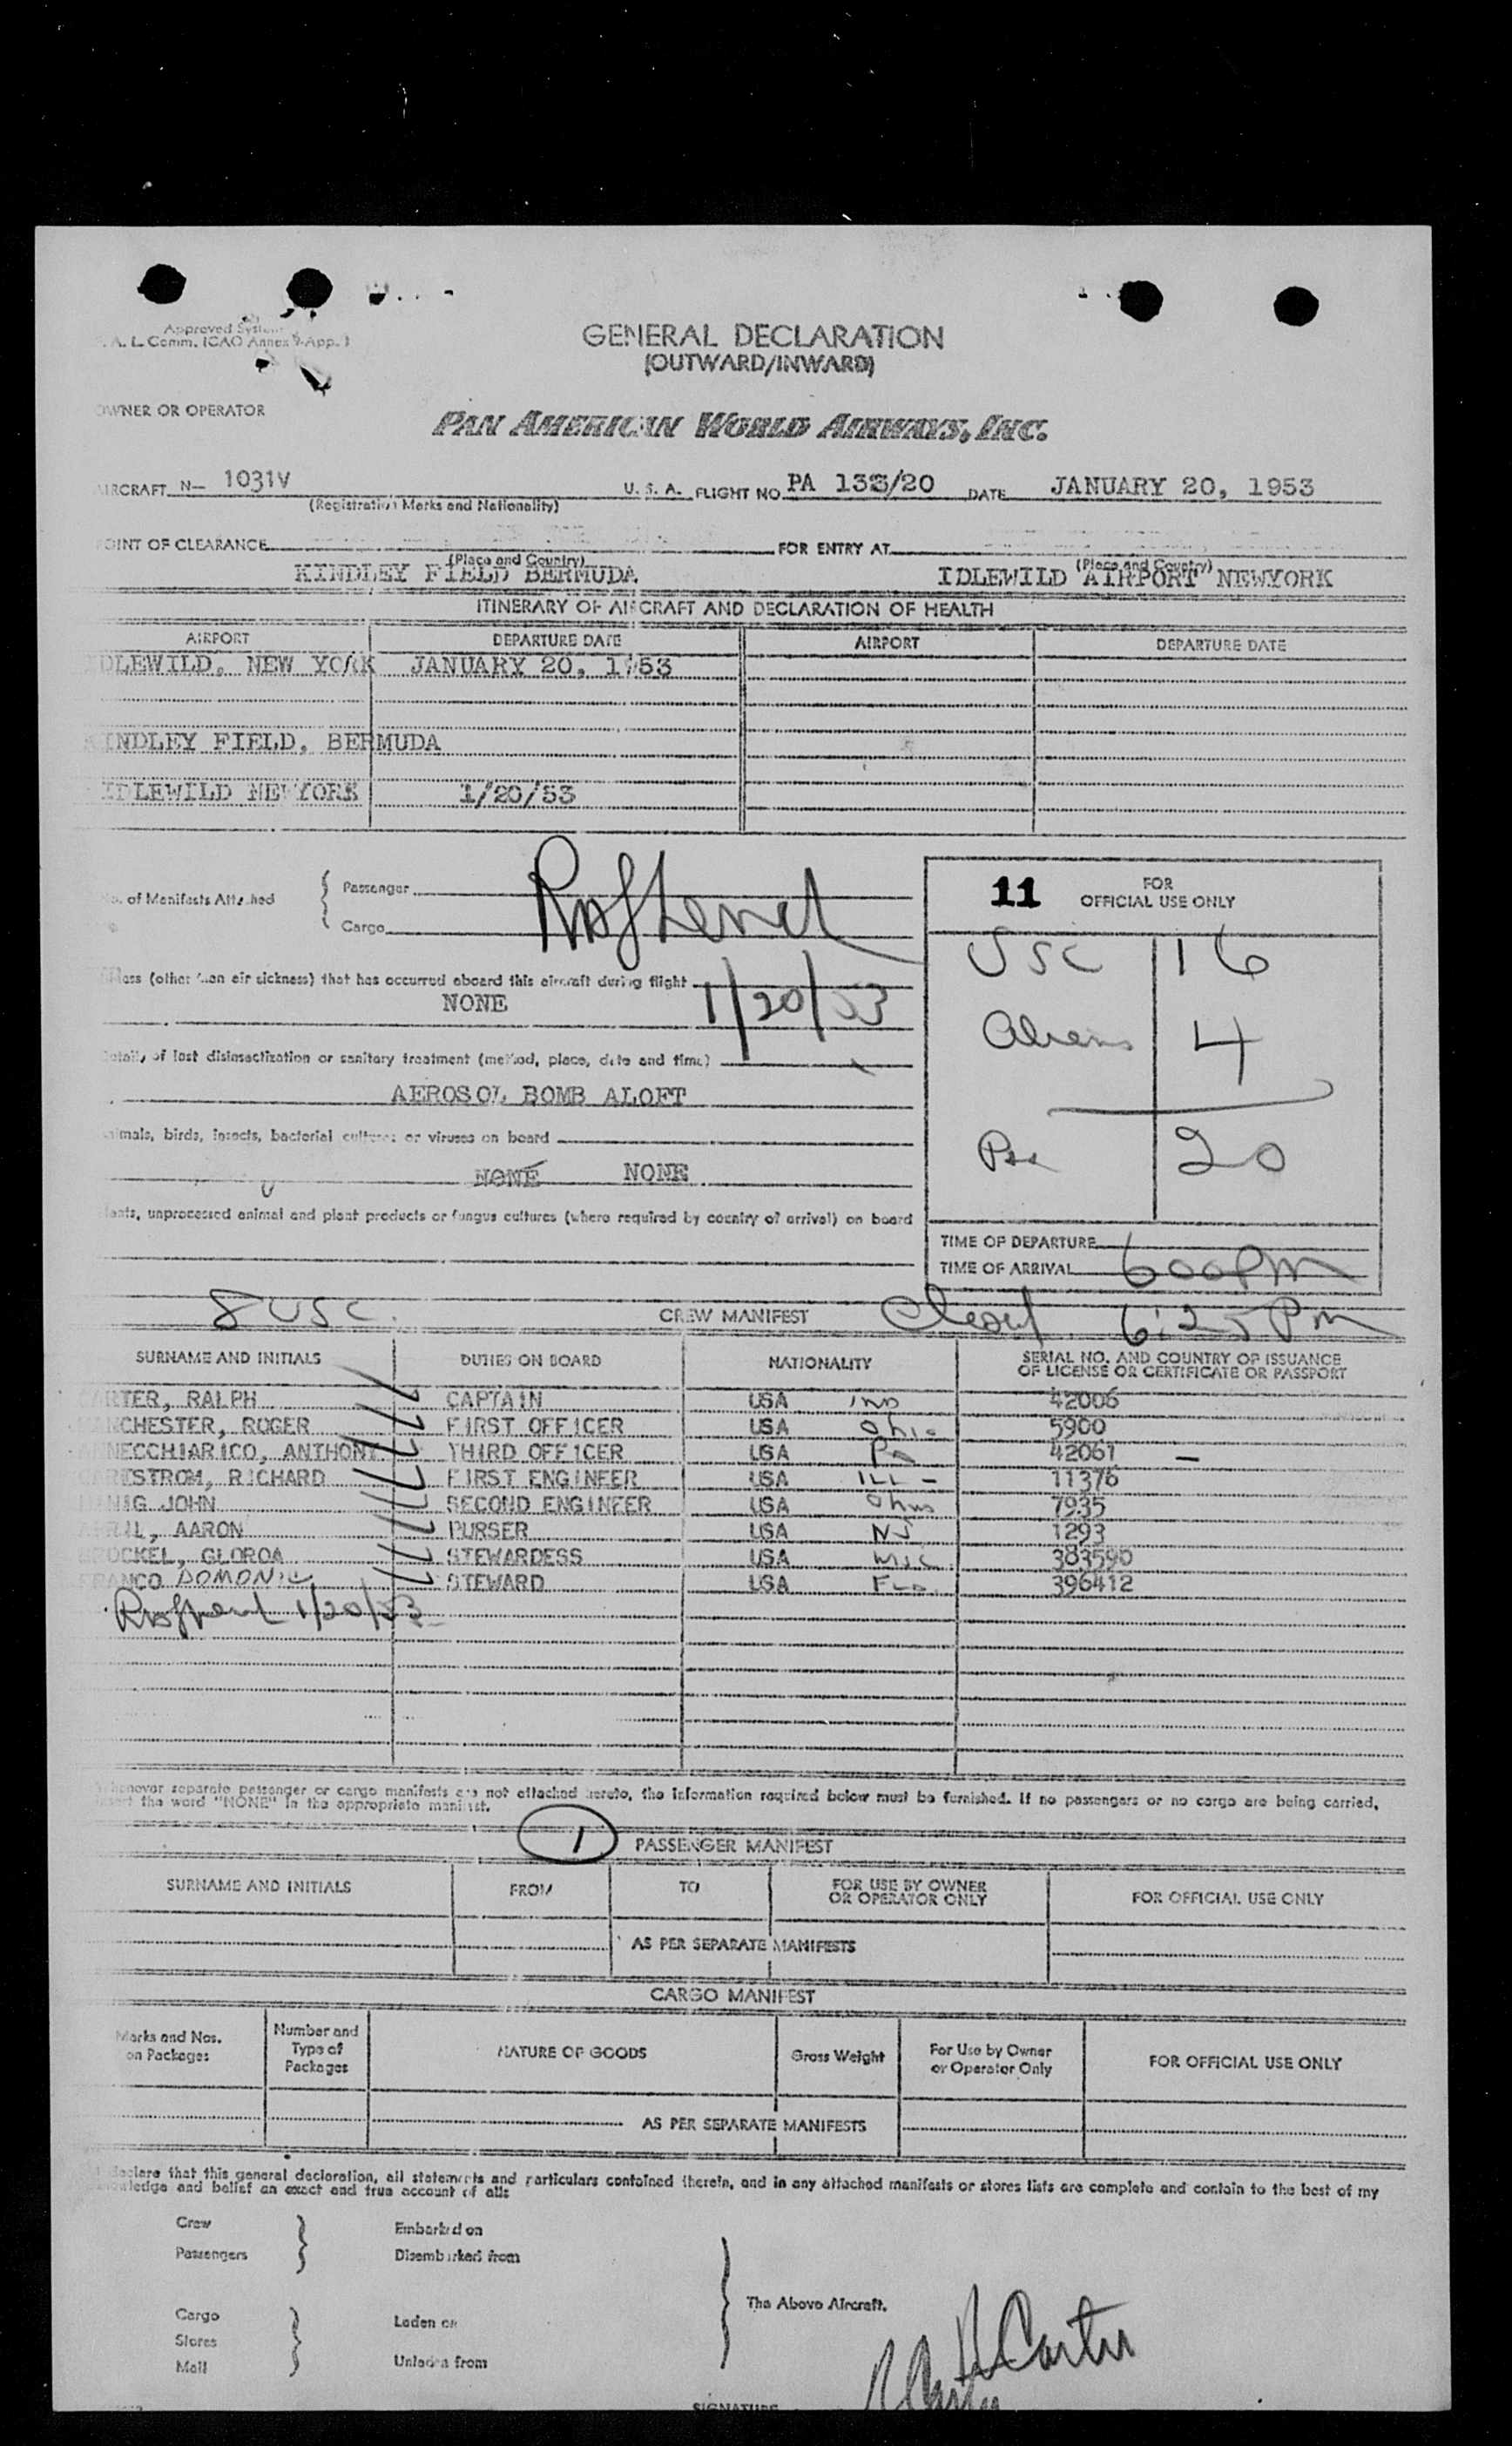 Approved System
A. L. Comm. ICAO Annex 9-App. 1
GENERAL DECLARATION
(OUTWARD/INWARD)
OWNER OR OPERATOR
PAN AMERICAN WORLD AIRWAYS, INC.
AIRCRAFT N- 1031V U. S. A. FLIGHT NO. PA 133/20 DATE JANUARY 20, 1953
(Registration Marks and Nationality)
POINT OF CLEARANCE FOR ENTRY AT
(Place and Country) (Place and Country)
KINDLEY FIELD BERMUDA IDLEWILD AIRPORT NEWYORK
ITINERARY OF AIRCRAFT AND DECLARATION OF HEALTH
AIRPORT DEPARTURE DATE AIRPORT DEPARTURE DATE
IDLEWILD, NEW YORK JANUARY 20, 1953
KINDLEY FIELD, BERMUDA
IDLEWILD NEWYORK 1/20/53
No. of Manifests Attached { Passenger
Cargo
11 FOR
OFFICIAL USE ONLY
USC 16
Aliens 4
20
Illness (other than air sickness) that has occurred aboard this aircraft during flight
NONE 1/20/53
Details of last disinsectization or sanitary treatment (method, place, date and time)
AEROSOL BOMB ALOFT
Animals, birds, insects, bacterial cultures or viruses on board
NONE NONE
Plants, unprocessed animal and plant products or fungus cultures (where required by country of arrival) on board
TIME OF DEPARTURE
TIME OF ARRIVAL 600PM
8 USC. CREW MANIFEST 6:25 PM
SURNAME AND INITIALS DUTIES ON BOARD NATIONALITY SERIAL NO. AND COUNTRY OF ISSUANCE
OF LICENSE OR CERTIFICATE OR PASSPORT
RTER, RALPH CAPTAIN USA IND 42006
NCHESTER, ROGER FIRST OFFICER USA Ohio 5900
NECCHIARICO, ANTHONY THIRD OFFICER USA Pa 42061 -
STROM, RICHARD FIRST ENGINEER USA ILL - 11376
NIG JOHN SECOND ENGINEER USA Ohio 7935
IL, AARON PURSER USA NJ 1293
OCKEL, GLOROA STEWARDESS USA 383590
ANCO DOMONIC STEWARD USA FLA. 396412
1/20/53
Whenever separate passenger or cargo manifests are not attached hereto, the information required below must be furnished. If no passengers or no cargo are being carried,
insert the word "NONE" in the appropriate manifest.
1 PASSENGER MANIFEST
SURNAME AND INITIALS FROM TO FOR USE BY OWNER
OR OPERATOR ONLY FOR OFFICIAL USE ONLY
AS PER SEPARATE MANIFESTS
CARGO MANIFEST
Marks and Nos.
on Packages Number and
Type of
Packages NATURE OF GOODS Gross Weight For Use by Owner
or Operator Only FOR OFFICIAL USE ONLY
AS PER SEPARATE MANIFESTS
I declare that this general declaration, all statements and particulars contained therein, and in any attached manifests or stores lists are complete and contain to the best of my
knowledge and belief an exact and true account of all:
Crew Embarked on
Passengers Disembarked from
The Above Aircraft.
Cargo Laden on
Stores
Mail Unladen from
R Carter
R Carter
SIGNATURE